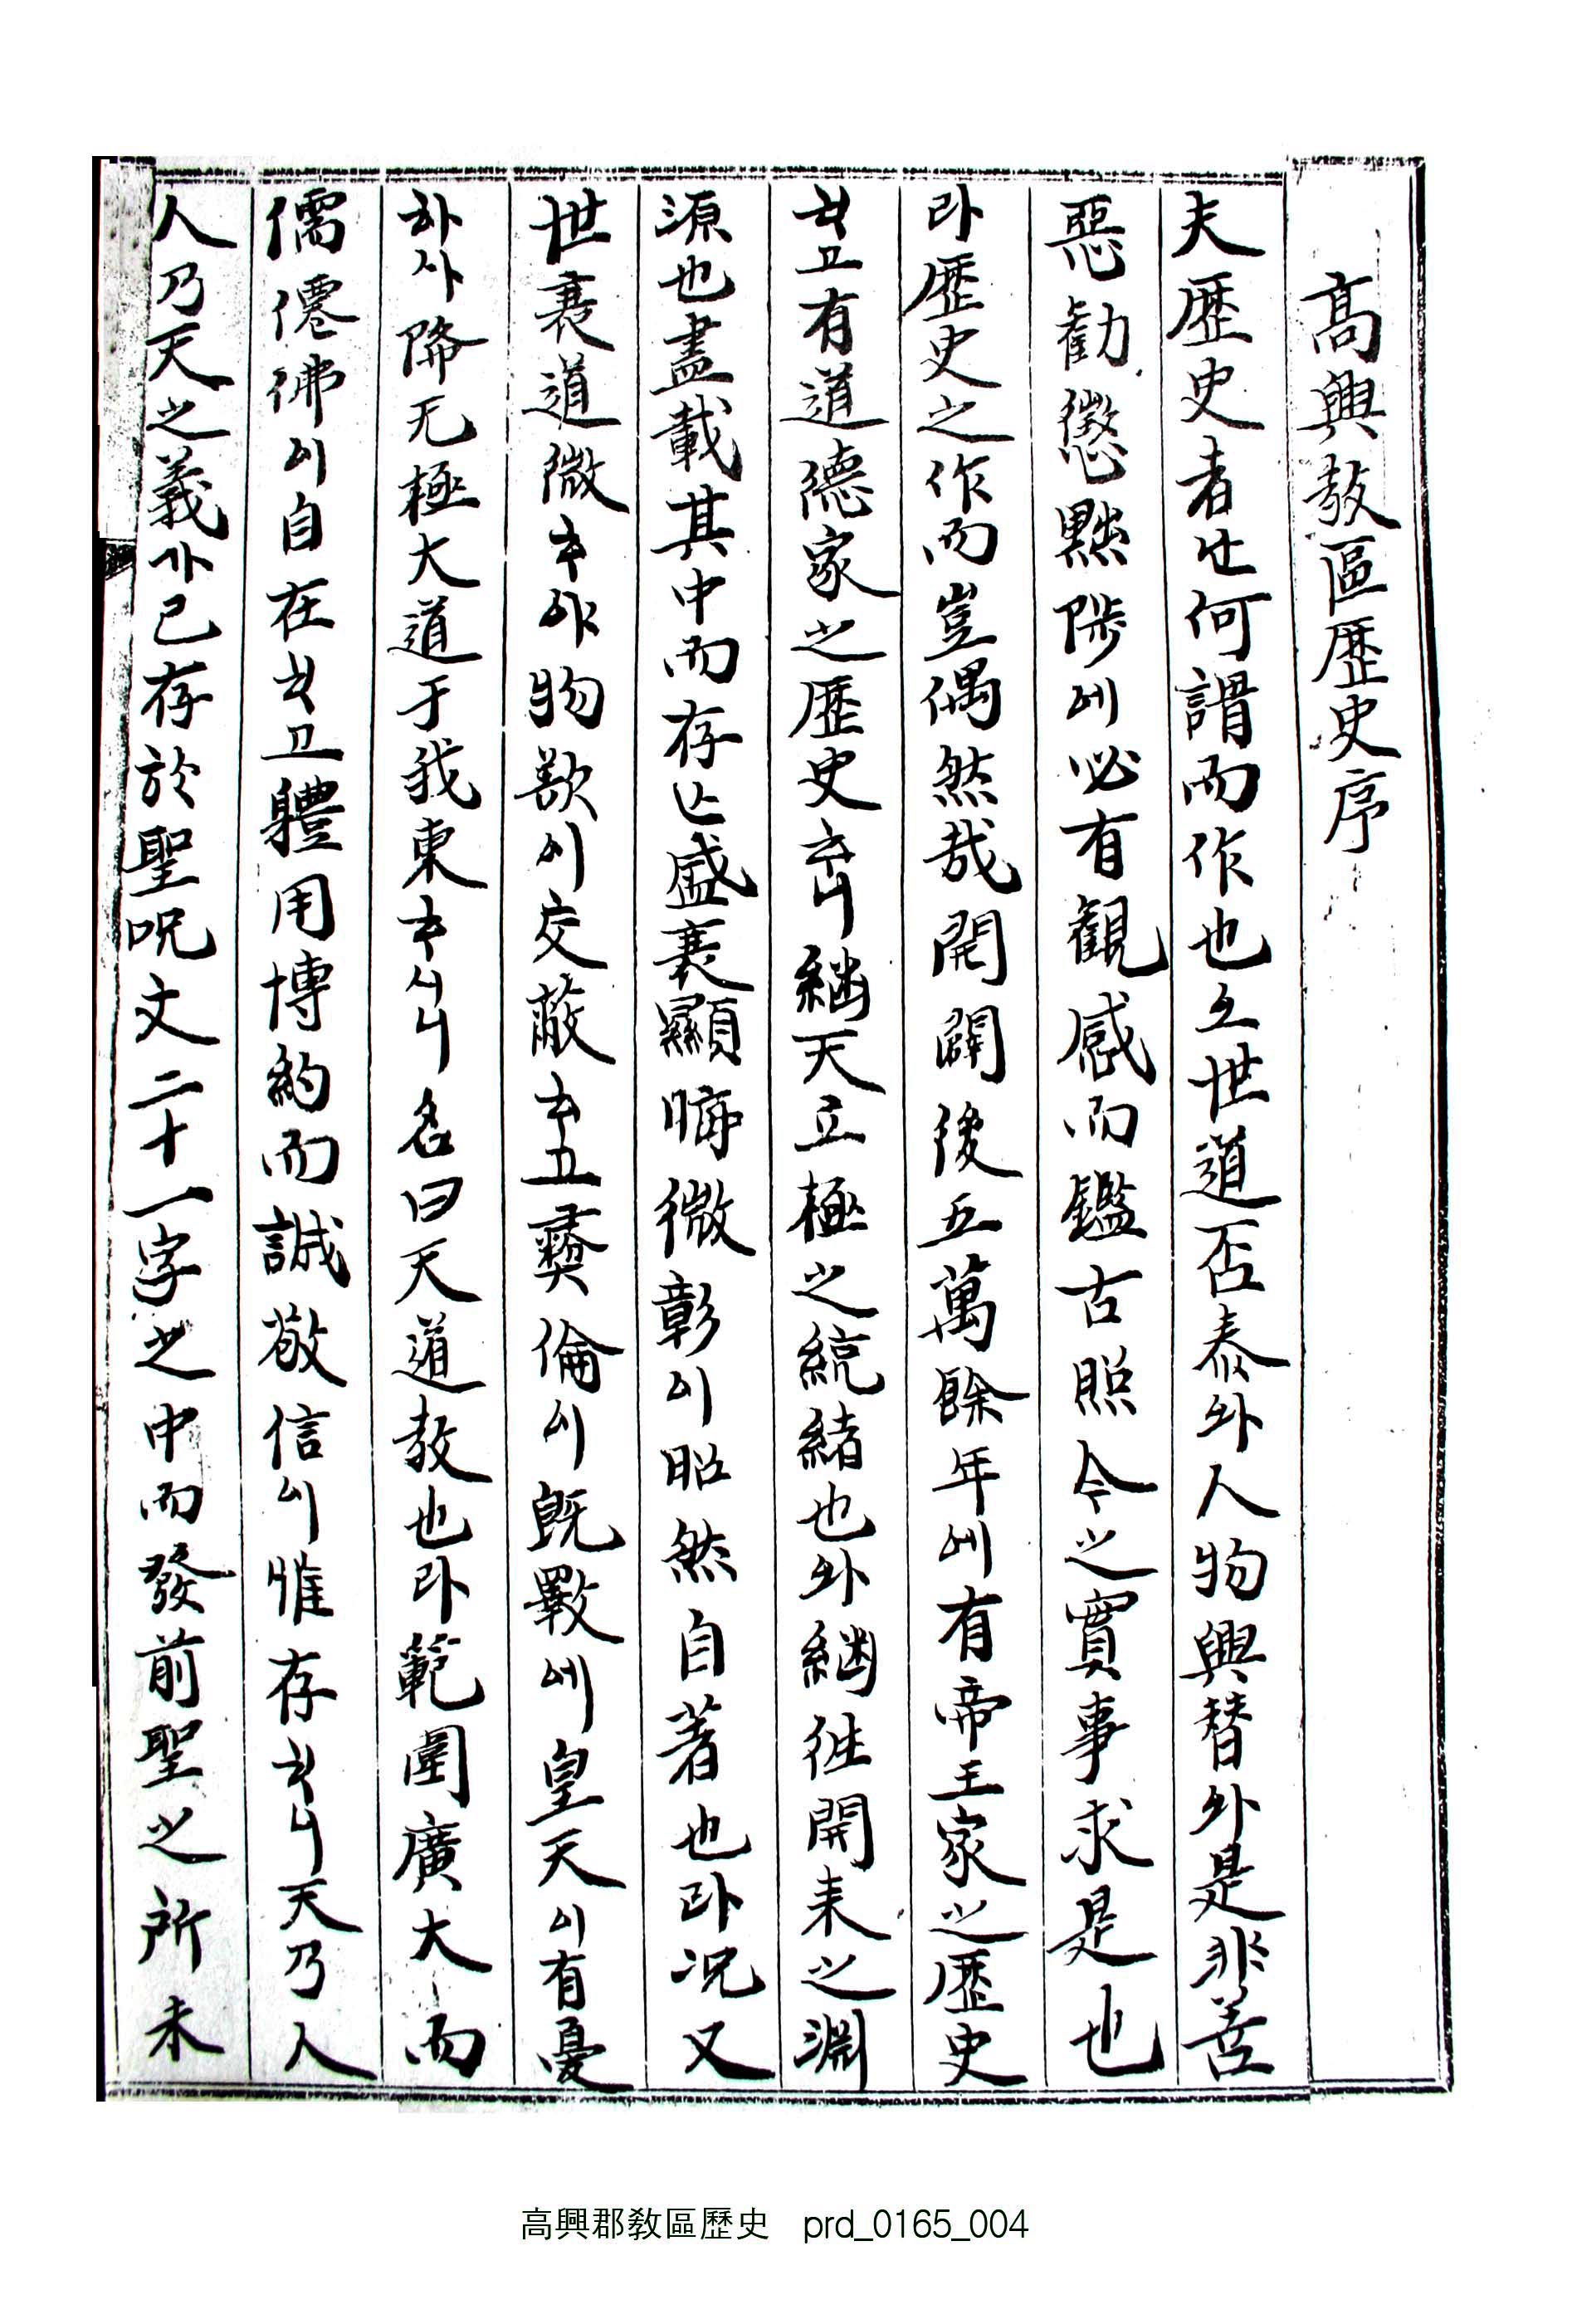 高興敎區歷史序
夫歷史者난何謂而作也오世道否泰와人物興替와是非善
惡勸懲黜陟에必有觀感而鑑古照今之實事求是也
라歷史之作而豈偶然哉開闢後五萬餘年에有帝王家之歷史
하고有道德家之歷史하니繼天立極之統緖也와繼往開來之淵
源也盡載其中而存亡盛衰顯晦微彰이昭然自著也라况又
世衰道微하야物欲이交蔽하고彛倫이旣斁에皇天이有憂
하사降无極大道于我東하시니名曰天道敎也라範圍廣大而
儒僊佛이自在하고體用博約而誠敬信이惟存하니天乃人
人乃天之義가已存於聖呪文二十一字之中而發前聖之所未
高興郡敎區歷史 prd_0165_004